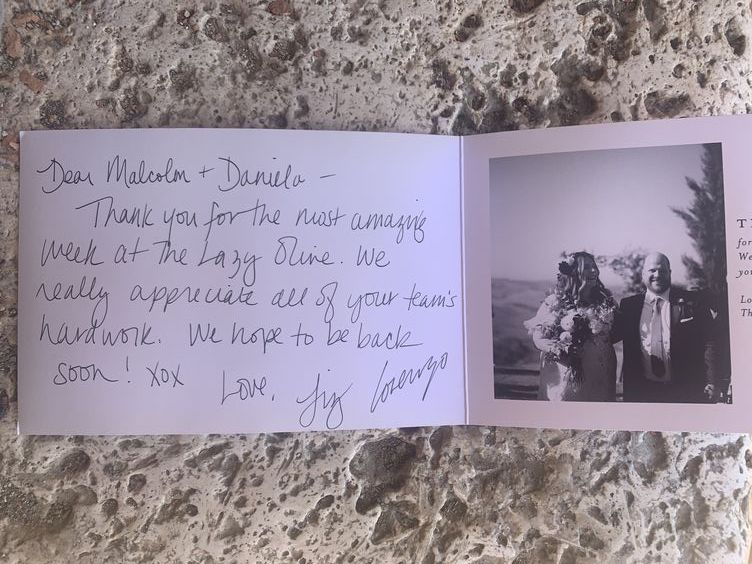 Dear Malcolm + Daniela –
Thank you for the most amazing
week at the Lazy Olive. We
really appreciate all of your team's
hardwork. We hope to be back
soon! xox Love, Liz Lorenzo
T
for
We
yo
Lo
Th